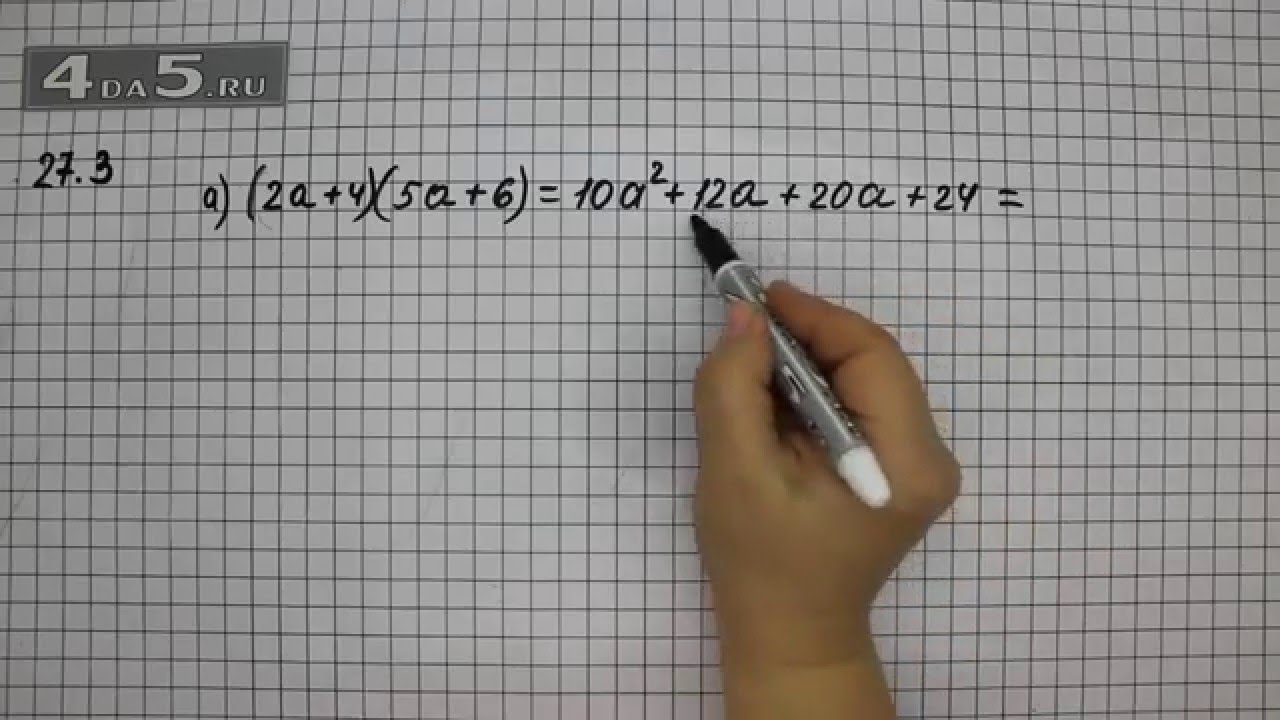 4DA5.RU
27.3
а) (2a+4)(5a+6) = 10a²+12a+20a+24 =